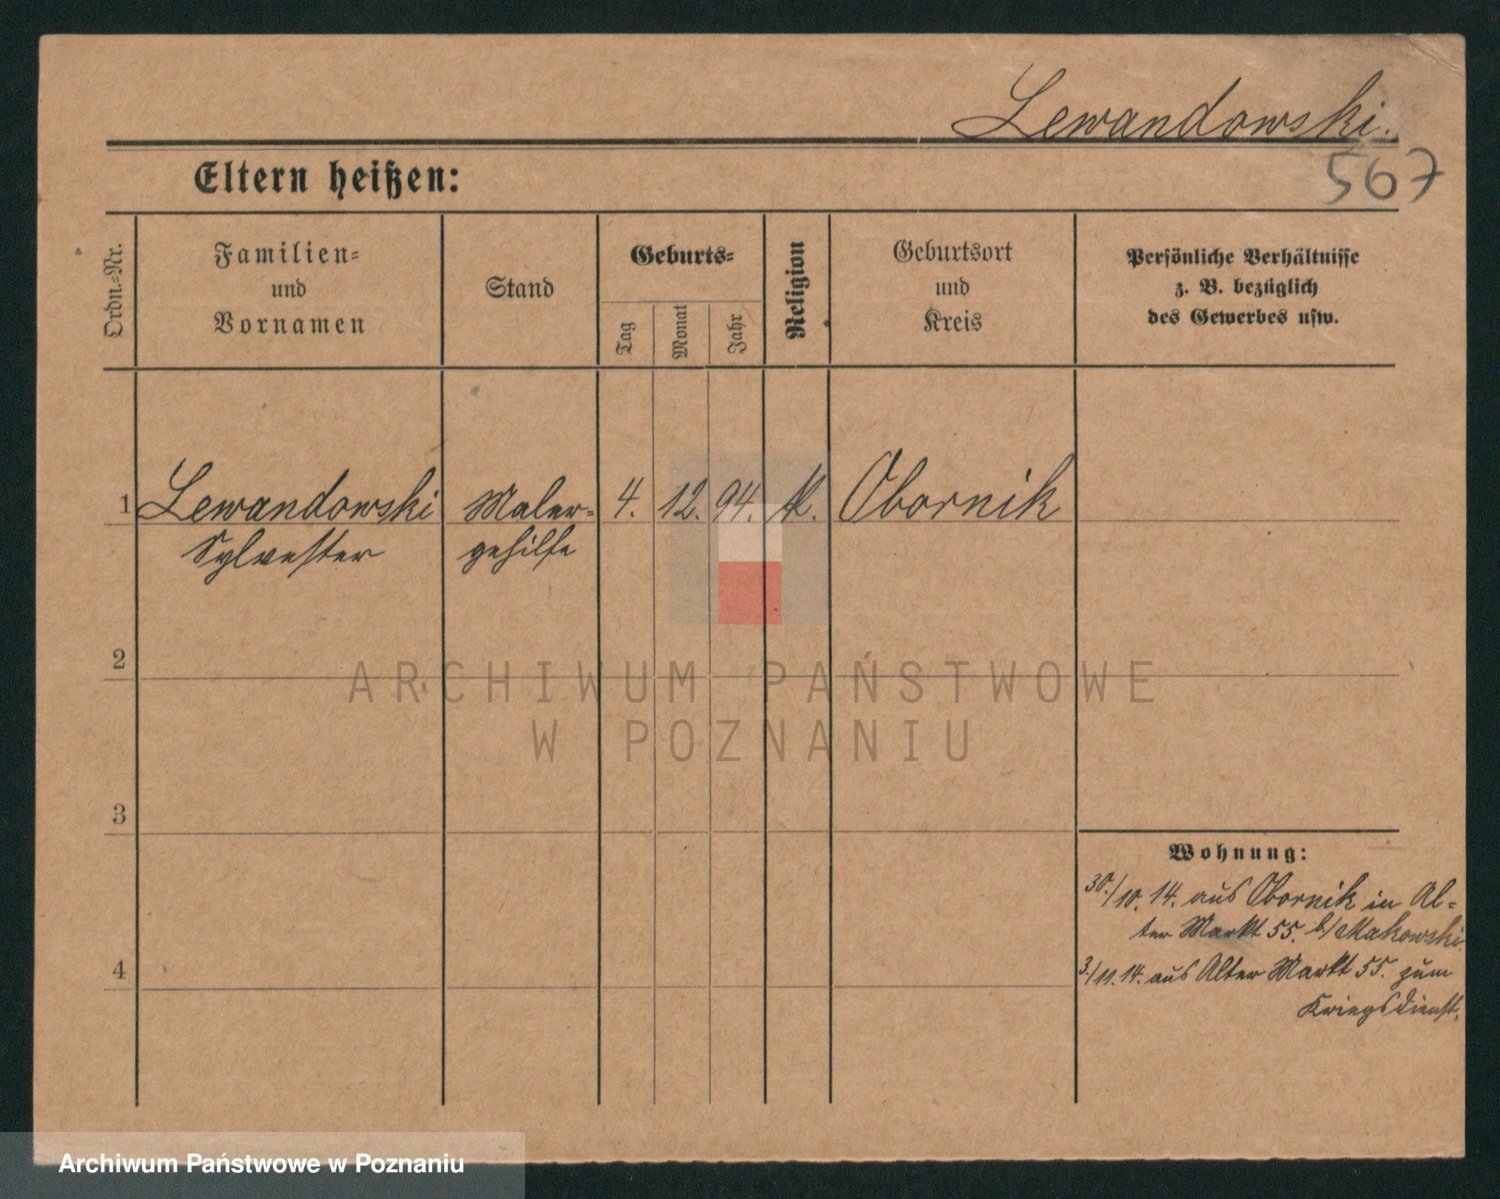 Lewandowski.
567
Eltern heißen:
Ordn.=Nr.
Familien=
und
Vornamen
Stand
Geburts=
Tag
Monat
Jahr
Religion
Geburtsort
und
Kreis
Persönliche Verhältnisse
z. B. bezüglich
des Gewerbes usw.
1 Lewandowski Maler= 4. 12. 94. k. Obornik
Sylvester gehilfe
2
3
4
Wohnung:
30./10. 14. aus Obornik in Al=
ter Markt 55. b/Makowski.
3./11. 14. aus Alter Markt 55. zum
Kriegsdienst.
ARCHIWUM PAŃSTWOWE
W POZNANIU
Archiwum Państwowe w Poznaniu